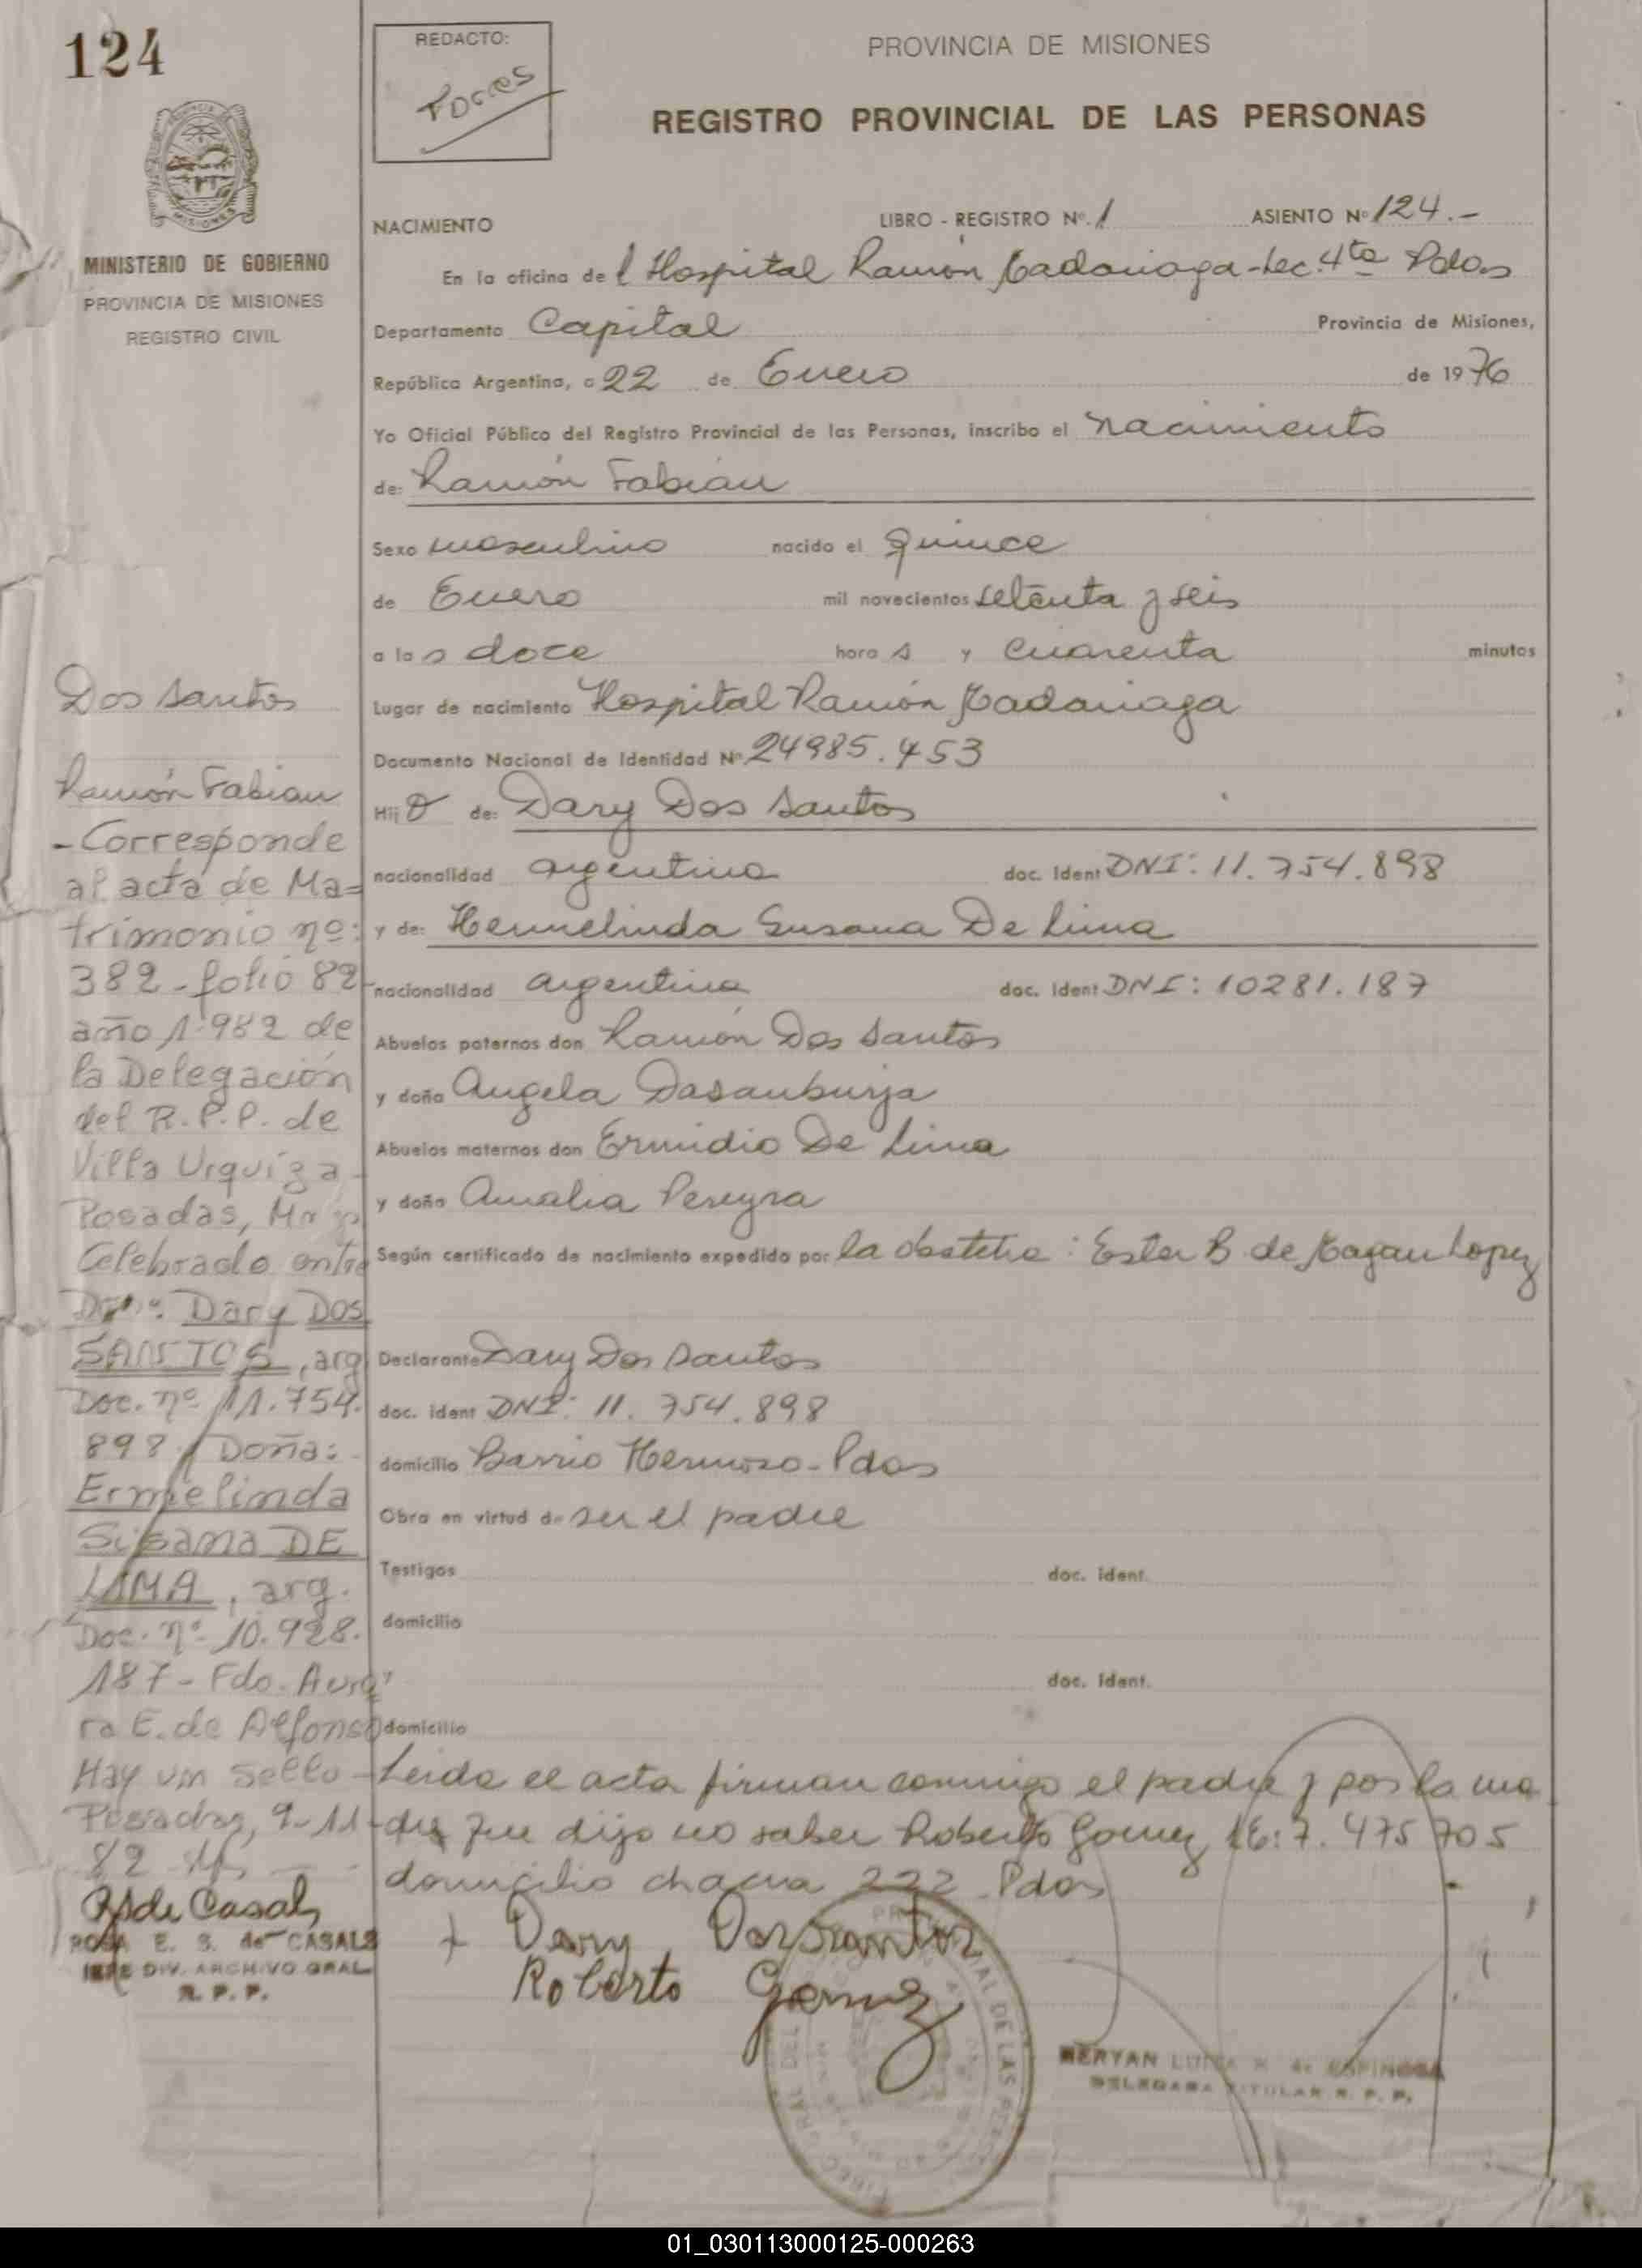 124
MINISTERIO DE GOBIERNO
PROVINCIA DE MISIONES
REGISTRO CIVIL
Dos Santos
Ramón Fabian
- Corresponde
al acta de Ma=
trimonio nº:
382 - folio 82
año 1.982 de
la Delegación
del R.P.P. de
Villa Urquiza
Posadas,
Celebrado entre
Dary DOS
SANTOS, arg
Doc. nº 11.754.
898 Doña:
Ermelinda
Susana DE
LIMA, arg.
Doc. nº 10.928.
187 - Fdo. Auro
ra E. de Alfonso
Hay un sello -
Posadas, 9-11-
82
RSde Casals
ROSA E. S. de CASALS
JEFE DIV. ARCHIVO GRAL
R. P. P.
REDACTO:
Torres
PROVINCIA DE MISIONES
REGISTRO PROVINCIAL DE LAS PERSONAS
NACIMIENTO LIBRO - REGISTRO Nº. 1 ASIENTO Nº 124.-
En la oficina del Hospital Ramón Madariaga - Sec. 4ta Pdas
Departamento Capital Provincia de Misiones,
República Argentina, a 22 de Enero de 1976
Yo Oficial Público del Registro Provincial de las Personas, inscribo el nacimiento
de: Ramón Fabián
Sexo masculino nacido el quince
de Enero mil novecientos setenta y seis
a las doce horas y cuarenta minutos
Lugar de nacimiento Hospital Ramón Madariaga
Documento Nacional de Identidad Nº 24985.453
Hijo de: Dary Dos Santos
nacionalidad argentino doc. Ident DNI: 11.754.898
y de: Hermelinda Susana De Lima
nacionalidad argentina doc. Ident DNI: 10281.187
Abuelos paternos don Ramón Dos Santos
y doña Angela Dasanburja
Abuelos maternos don Ermidio De Lima
y doña Amalia Pereyra
Según certificado de nacimiento expedido por la obstetra: Ester B de Magan Lopez
Declarante Dary Dos Santos
doc. ident DNI: 11.754.898
domicilio Barrio Hermoso - Pdas
Obra en virtud de ser el padre
Testigos doc. ident.
domicilio
doc. Ident.
domicilio
Leida el acta firman conmigo el padre y por la ma
dre que dijo no saber Roberto Gomez LE: 7.475705
domicilio chacra 222 Pdas
+ Dary Dossantos
Roberto Gomez
MERYAN LUISA M. de ESPINOSA
DELEGADA TITULAR R. P. P.
01_030113000125-000263